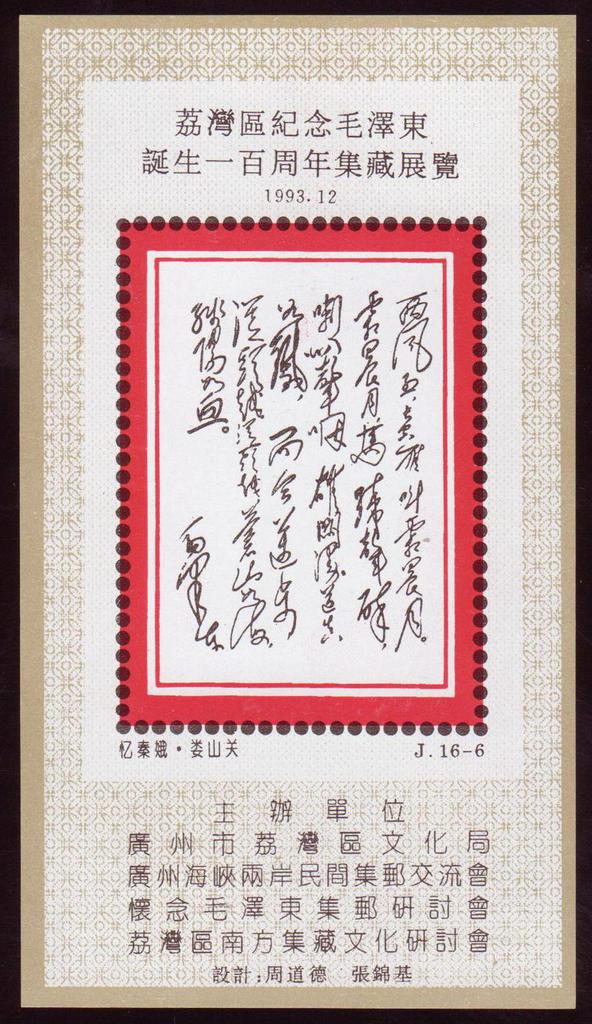 荔灣區紀念毛澤東
誕生一百周年集藏展覽
1993.12
西风烈長空雁叫霜晨月。
霜晨月馬蹄聲碎，
喇叭聲咽雄關漫道真
如鐵，而今邁步
從頭越從頭越蒼山如海，
殘陽如血。
毛澤东
忆秦娥·娄山关
J.16-6
主辦單位
廣州市荔灣區文化局
廣州海峽兩岸民間集郵交流會
懷念毛澤東集郵研討會
荔灣區南方集藏文化研討會
設計:周道德 張錦基